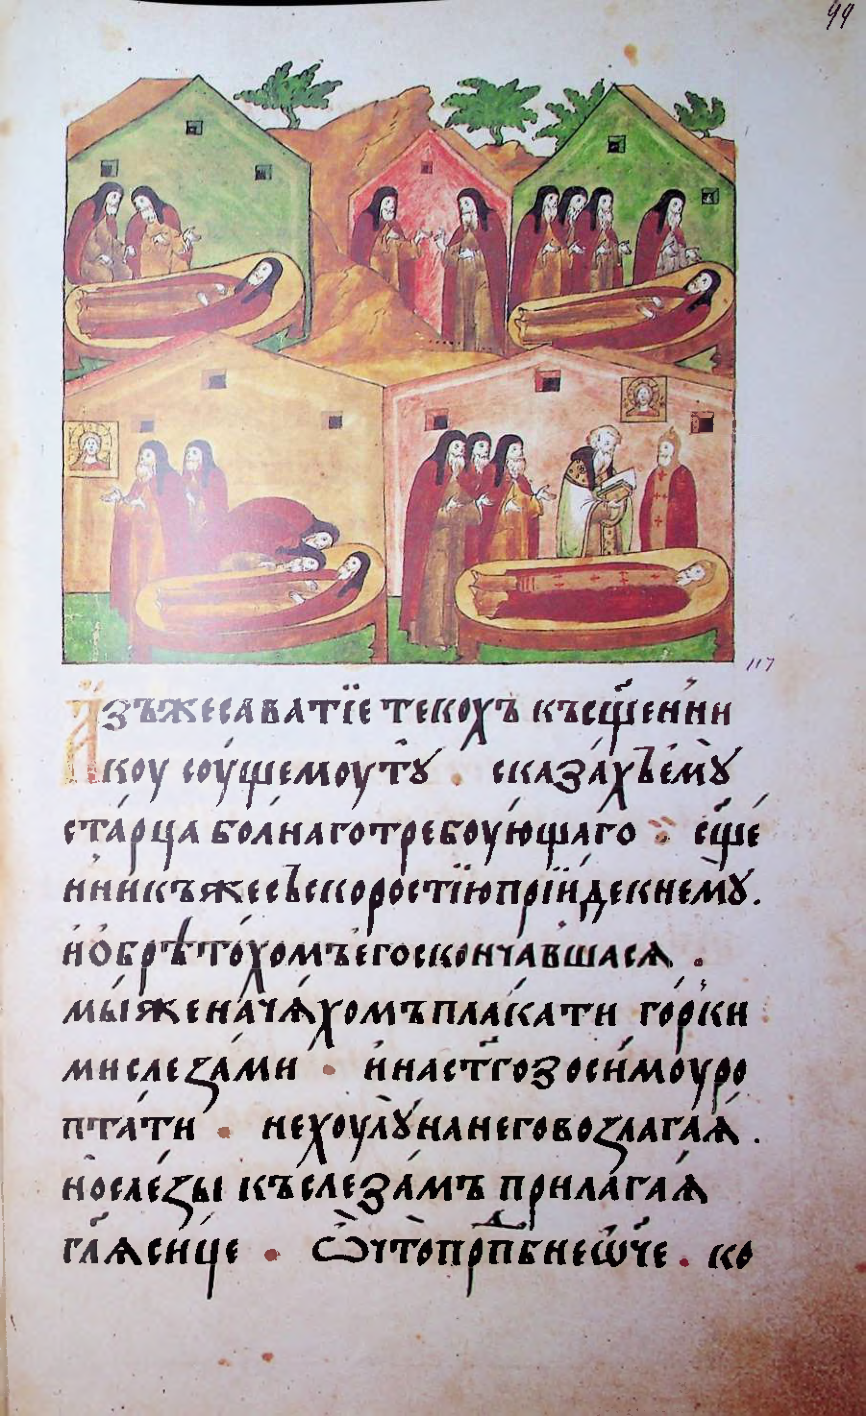 99
117
А҆зъжесаватїе текохъ къ сщ҃енни
коу соу́щемоу тꙋ̀ . сказа́хъ є҆мꙋ̀
ста́рца бо́лнаго требоу́ющаго : сщ҃е́
нникъ же съ скоростїю прїи́де к нємꙋ̀ .
и҆ ѻ҆брѣто́хомъ є҆го̀ скончавшасѧ .
мы́ же нача́хомъ пла́кати го́рки
ми слеза́ми . и҆ на ст҃го зоси́моу ро
пта́ти . не хоулꙋ̀ на него возлага́ѧ .
но̀ сле́зы къ слеза́мъ прилага́ѧ
гл҃ѧ си́це . ѽ что̀ прⷣпбне ѻ҆́ч҃е . ко